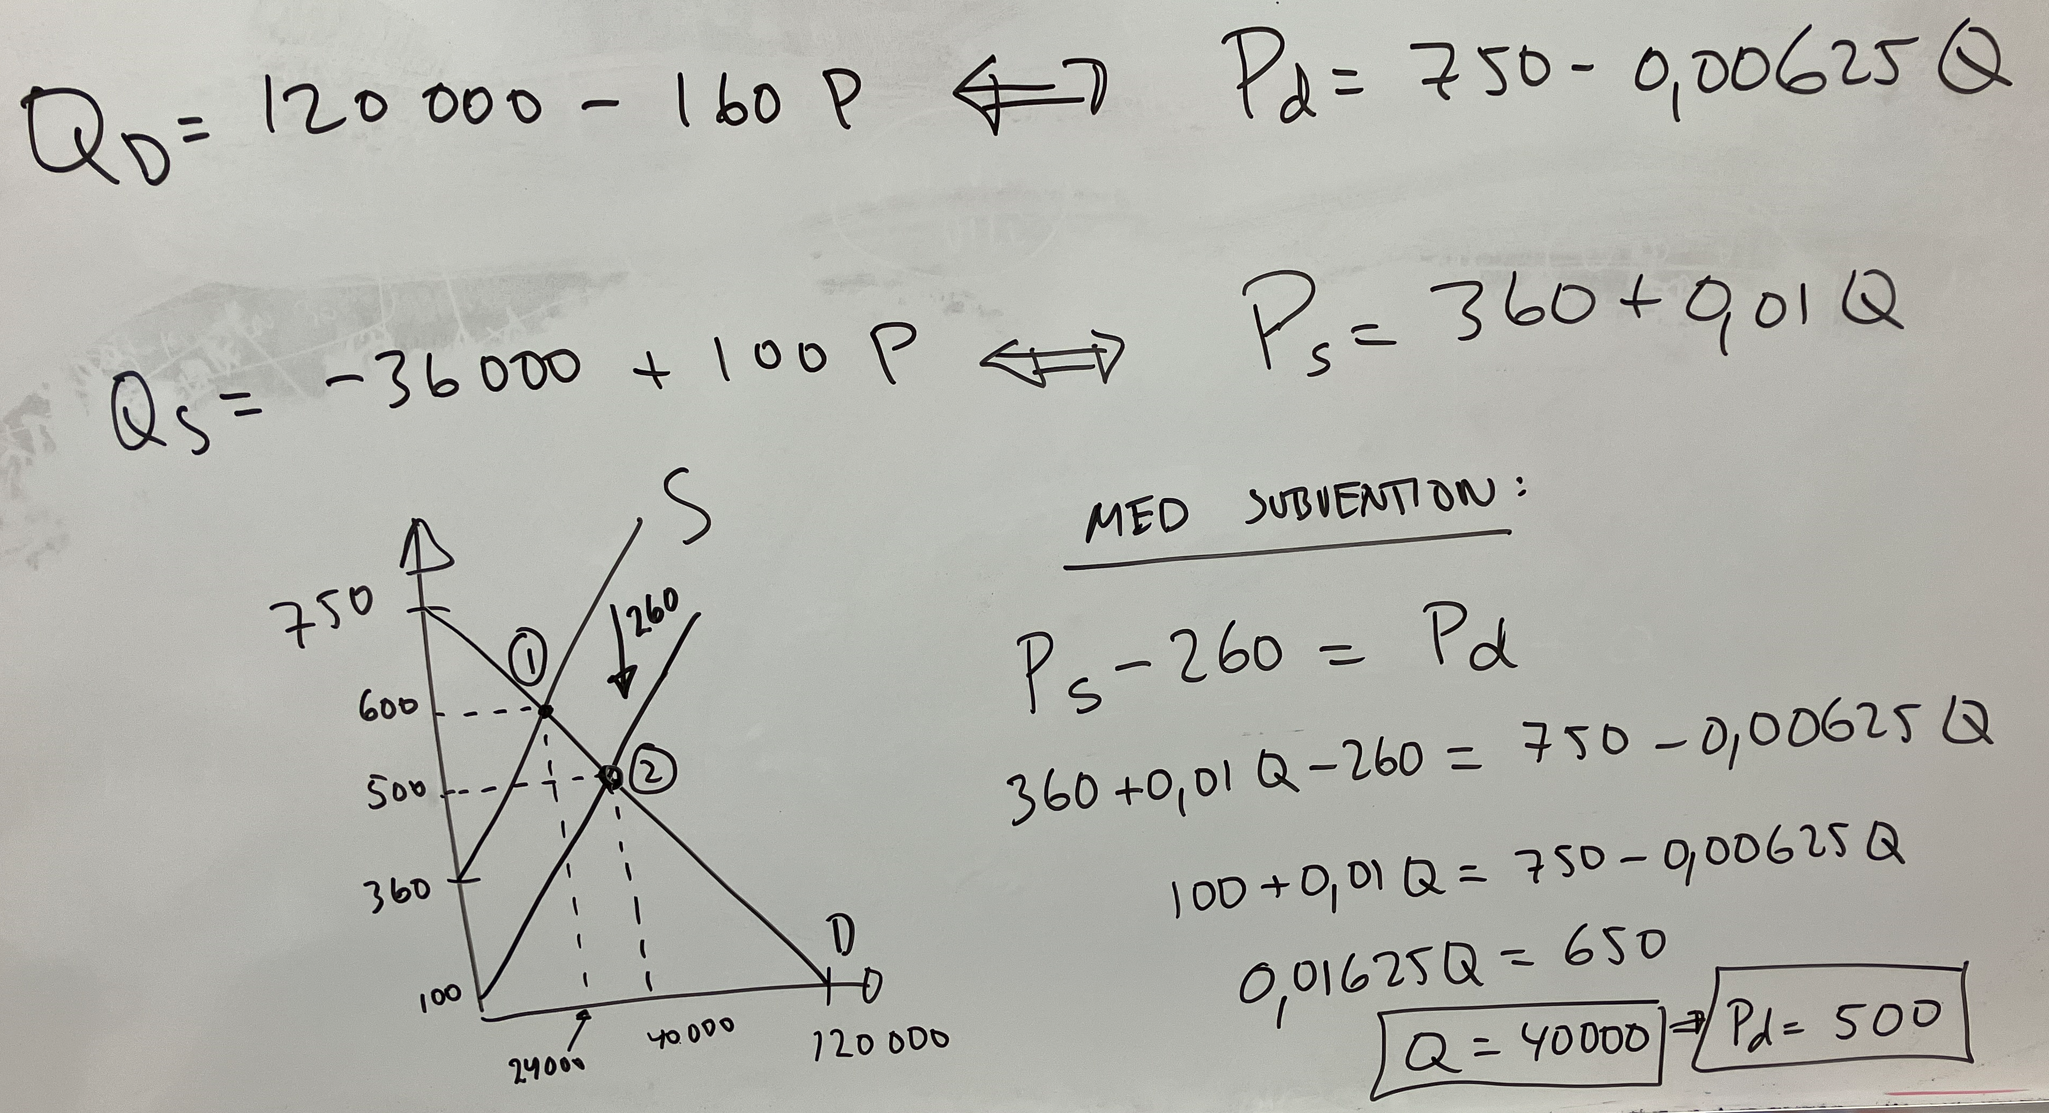 Q_D = 120 000 - 160 P ⟺ P_d = 750 - 0,00625 Q
Q_S = -36000 + 100 P ⟺ P_S = 360 + 0,01 Q
S
750
① ↓ 260
600
500 ②
360
D
100
24000 40.000 120 000
MED SUBVENTION:
P_S - 260 = P_d
360 + 0,01 Q - 260 = 750 - 0,00625 Q
100 + 0,01 Q = 750 - 0,00625 Q
0,01625 Q = 650
Q = 40000 ⇒ P_d = 500